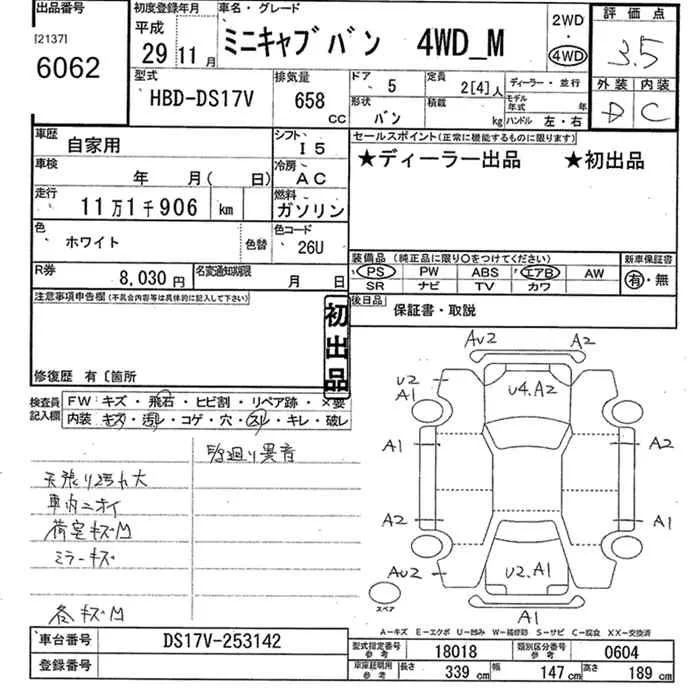 出品番号
[2137]
6062
初度登録年月
平成
29 11月
車名・グレード
ミニキャブバン 4WD_M
2WD
・
4WD
評価点
3.5
外装 内装
D C
型式
HBD-DS17V
排気量
658 CC
ドア 5
定員 2[4]人
ディーラー・並行
形状 バン
積載 kg
モデル年式 年
ハンドル 左・右
車歴 自家用
シフト I5
車検 年 月( 日)
冷房 AC
走行 11万1千906 km
燃料 ガソリン
色 ホワイト
色替
色コード 26U
R券 8,030円
名変通知期限 月 日
セールスポイント(正常に機能するものに限ります)
★ディーラー出品 ★初出品
装備品 (純正品に限り○をつけてください)
PS PW ABS エアB AW
SR ナビ TV カワ
新車保証書
有・無
後日品 保証書・取説
注意事項申告欄(不具合内容等は具体的に記入して下さい)
初出品
修復歴 有〔箇所
検査員記入欄
FW:キズ・飛石・ヒビ割・リペア跡・×要
内装 キズ・汚れ・コゲ・穴・スレ・キレ・破レ
足廻り異音
天張り汚れ大
車内ニオイ
荷室キズM
ミラーキズ
各キズM
AU2 A2
U2 A1
U4.A2
A1 A2
A2 A1
AU2 U2.A1
スペア
A1
A-キズ E-エクボ U-凹み W-補修跡 S-サビ C-腐食 XX-交換済
車台番号 DS17V-253142
登録番号
型式指定番号 参考 18018
類別区分番号 参考 0604
車庫証明用 参考 長さ 339 cm 幅 147 cm 高さ 189 cm